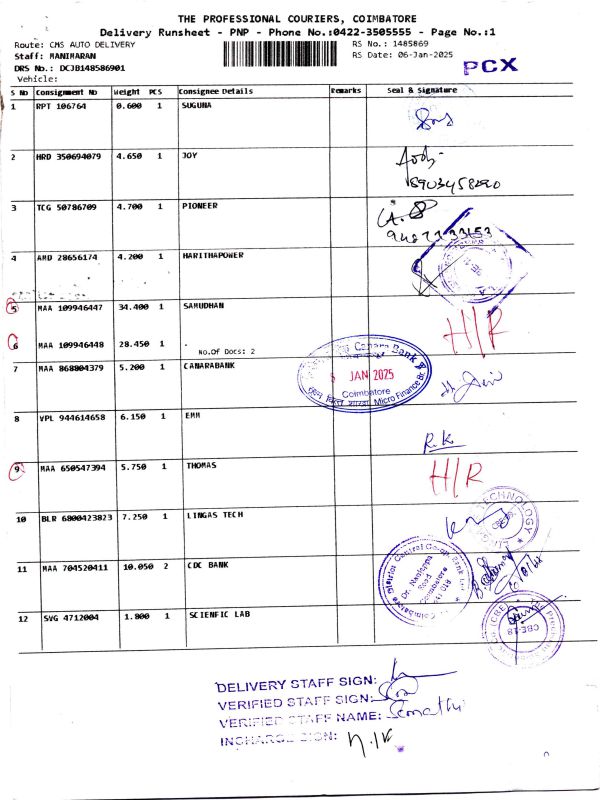 THE PROFESSIONAL COURIERS, COIMBATORE
Delivery Runsheet - PNP - Phone No.:0422-3505555 - Page No.:1
Route: CMS AUTO DELIVERY
RS No.: 1485869
Staff: MANIMARAN
RS Date: 06-Jan-2025
PCX
DRS No.: DCJB148586901
Vehicle:
S No Consignment No Weight PCS Consignee Details Remarks Seal & Signature
1 RPT 106764 0.600 1 SUGUNA
2 HRD 350694079 4.650 1 JOY
3 TCG 50786709 4.700 1 PIONEER
4 AMD 28656174 4.200 1 HARITHAPOWER
5 MAA 109946447 34.400 1 SAMUDHAN
H/R
6 MAA 109946448 28.450 1 .
No.Of Docs: 2
7 MAA 868804379 5.200 1 CANARABANK
Canara Bank
JAN 2025
Coimbatore
Micro Finance Br.
8 VPL 944614658 6.150 1 EMM
R.K.
9 MAA 650547394 5.750 1 THOMAS
H/R
10 BLR 6800423823 7.250 1 LINGAS TECH
TECHNOLOGY
11 MAA 704520411 10.050 2 CDC BANK
Coimbatore District Central Co-op. Bank
Road
Coimbatore
12 SVG 4712004 1.800 1 SCIENFIC LAB
CBE-18
DELIVERY STAFF SIGN:
VERIFIED STAFF SIGN:
VERIFIED STAFF NAME:
INCHARGE SIGN: